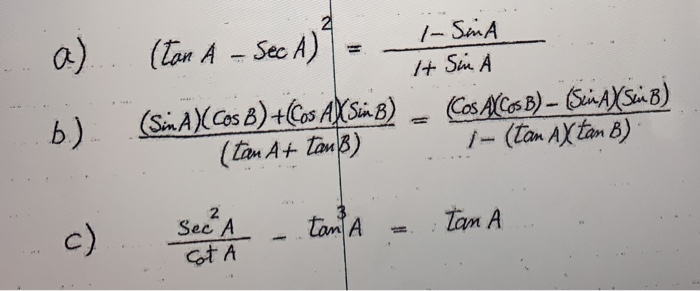 a) (tan A - Sec A)² = (1 - Sin A) / (1 + Sin A)
b) ((Sin A)(Cos B) + (Cos A)(Sin B)) / (tan A + tan B) = ((Cos A)(Cos B) - (Sin A)(Sin B)) / (1 - (tan A)(tan B))
c) Sec² A / Cot A - tan³ A = tan A